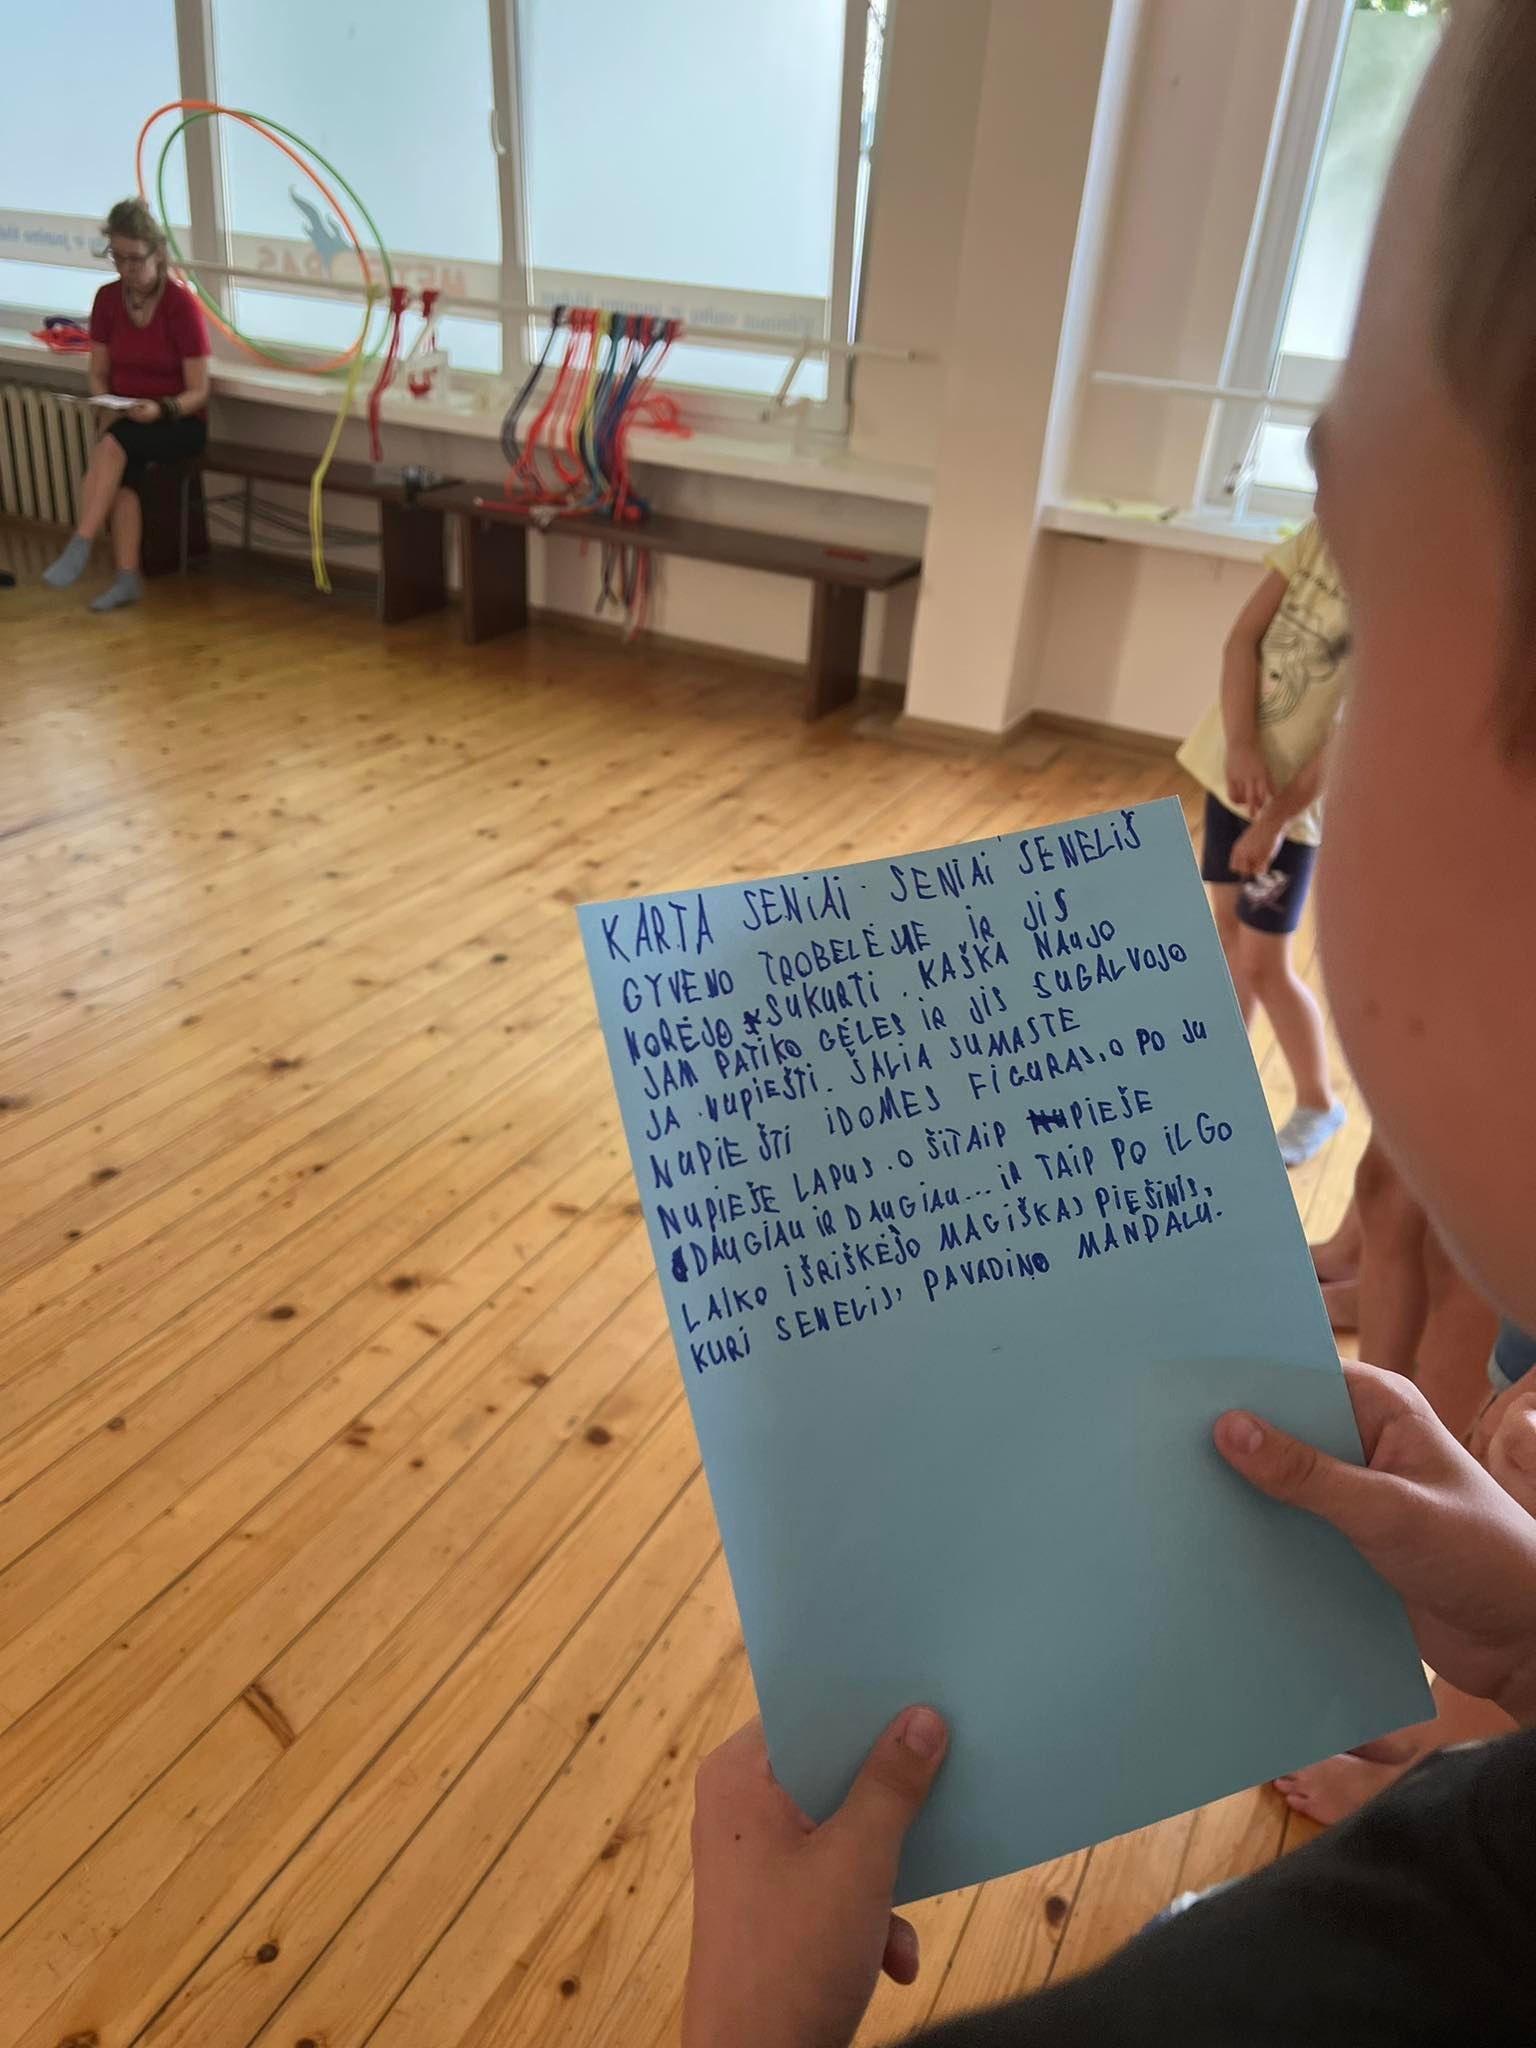 KARTA SENIAI SENIAI SENELIŠ
GYVENO TROBELĖJE IR JIS
NORĖJO SUKURTI. KAŠKA NAUJO
JAM PATIKO GĖLES IR JIS SUGALVOJO
JA NUPIEŠTI. ŠALIA SUMASTE
NUPIEŠTI IDOMES FIGURAS, O PO JU
NUPIEŠE LAPUS. O ŠITAIP PIEŠE
DAUGIAU IR DAUGIAU... IR TAIP PO ILGO
LAIKO IŠRIŠKĖJO MAGIŠKAS PIEŠINIS,
KURI SENELIS, PAVADINO MANDALU.